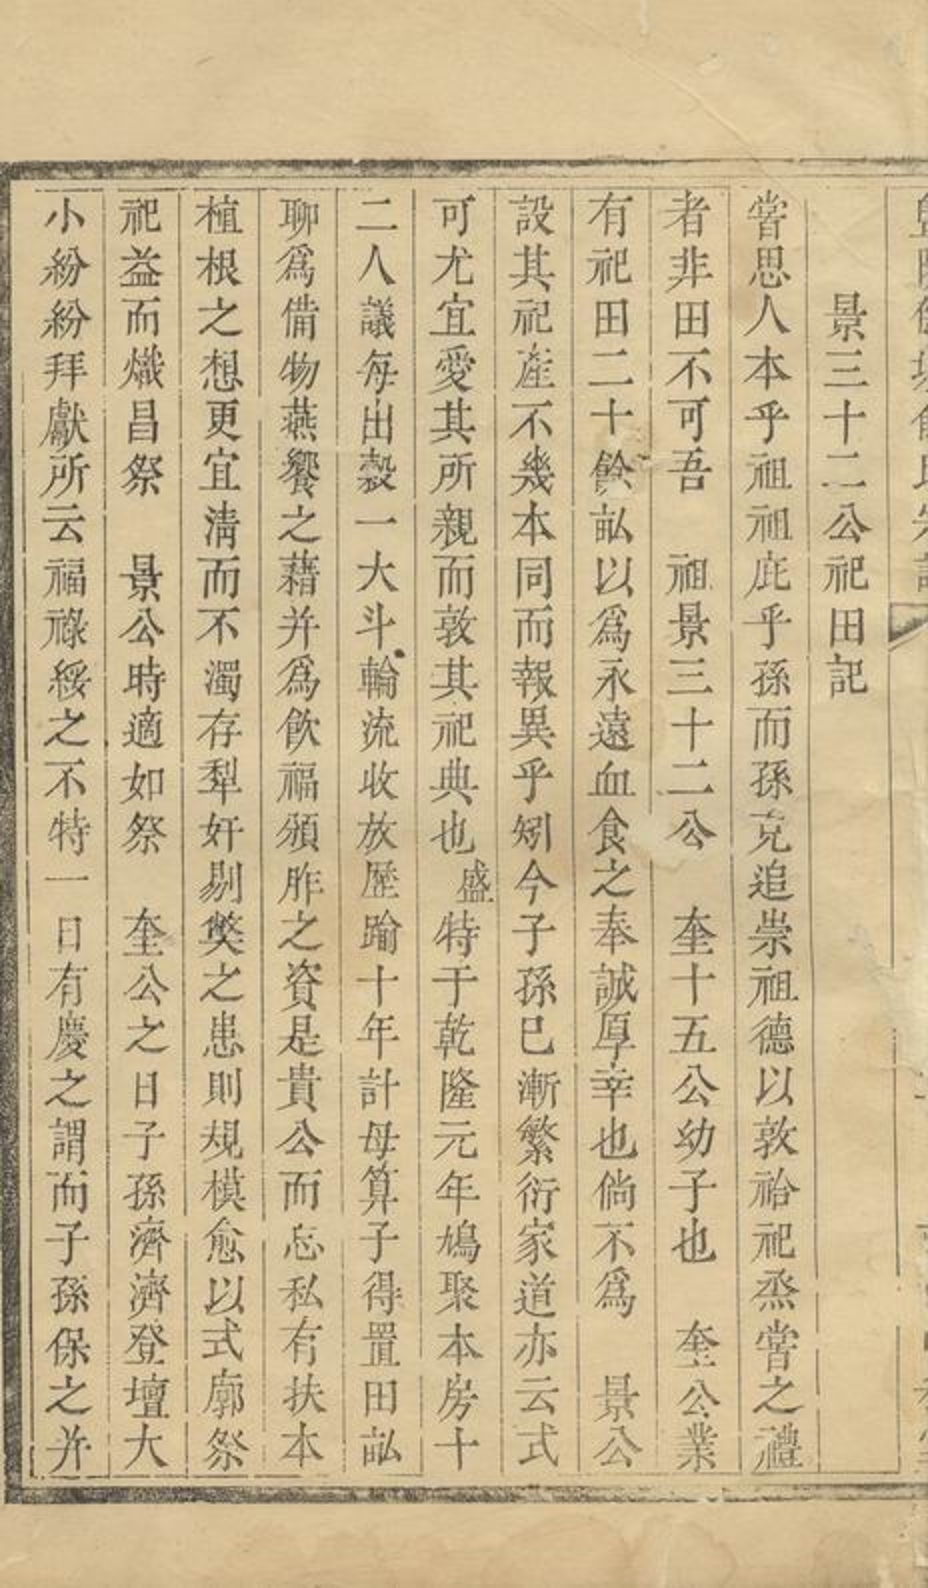 景三十二公祀田記
嘗思人本乎祖祖庇乎孫而孫克追崇祖德以敦祫祀烝嘗之禮
者非田不可吾　祖景三十二公　奎十五公幼子也　奎公業
有祀田二十餘畝以爲永遠血食之奉誠厚幸也倘不爲　景公
設其祀產不幾本同而報異乎矧今子孫巳漸繁衍家道亦云式
可尤宜愛其所親而敦其祀典也盛特于乾隆元年鳩聚本房十
二人議每出穀一大斗輪流收放歷踰十年計母算子得置田畝
聊爲備物燕饗之藉并爲飲福頒胙之資是貴公而忘私有扶本
植根之想更宜淸而不濁存犁奸剔獘之患則規模愈以式廓祭
祀益而熾昌祭　景公時適如祭　奎公之日子孫濟濟登壇大
小紛紛拜獻所云福祿綏之不特一日有慶之謂而子孫保之并